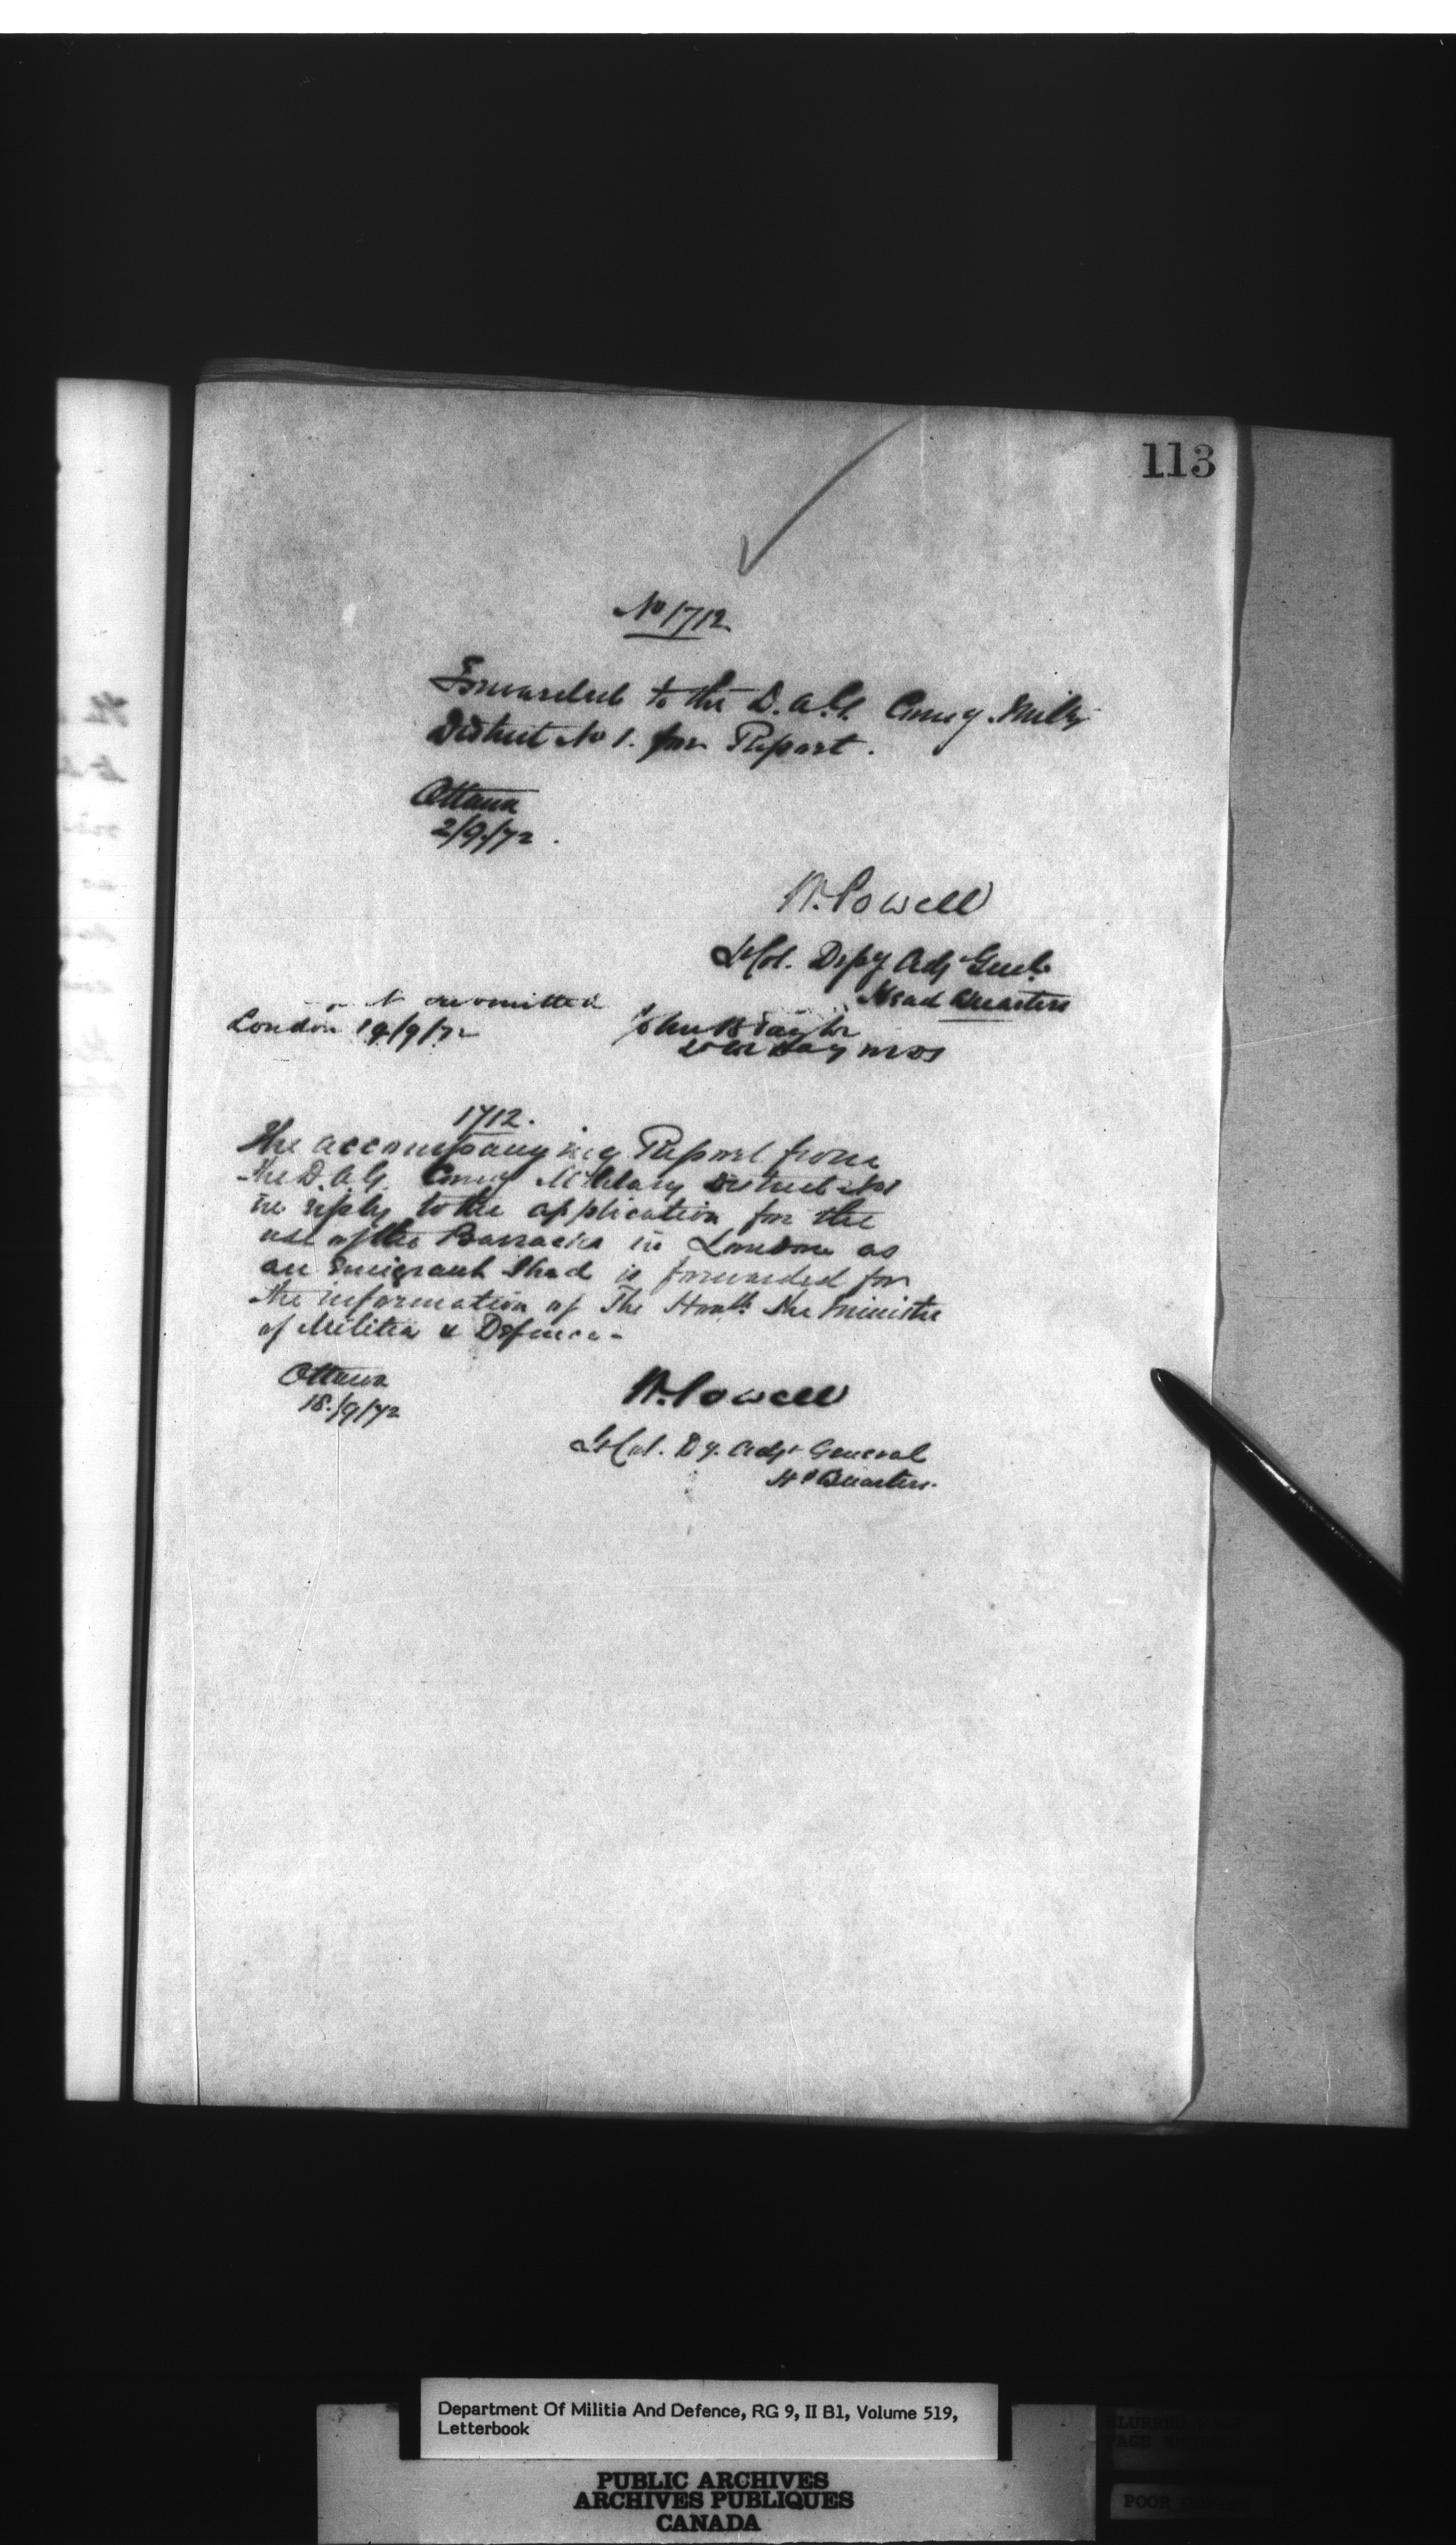 113
No 1712
Forwarded to the D.A.G. Comg Milty
District No 1. for Report.
Ottawa
2/9/72.
W. Powell
Lt Col. Depy Adj Genl.
Head Quarters
London 14/9/72
John B Taylor
1712.
The accompanying Report from
the D.A.G. Comg Military District No 1
in reply to the application for the
use of the Barracks in London as
an Emigrant Shed is forwarded for
the information of The Honble The Minister
of Militia & Defence-
Ottawa
18/9/72
W. Powell
Lt Col. Dy. Adjt General
Hd Quarters.
Department Of Militia And Defence, RG 9, II B1, Volume 519,
Letterbook
PUBLIC ARCHIVES
ARCHIVES PUBLIQUES
CANADA
POOR